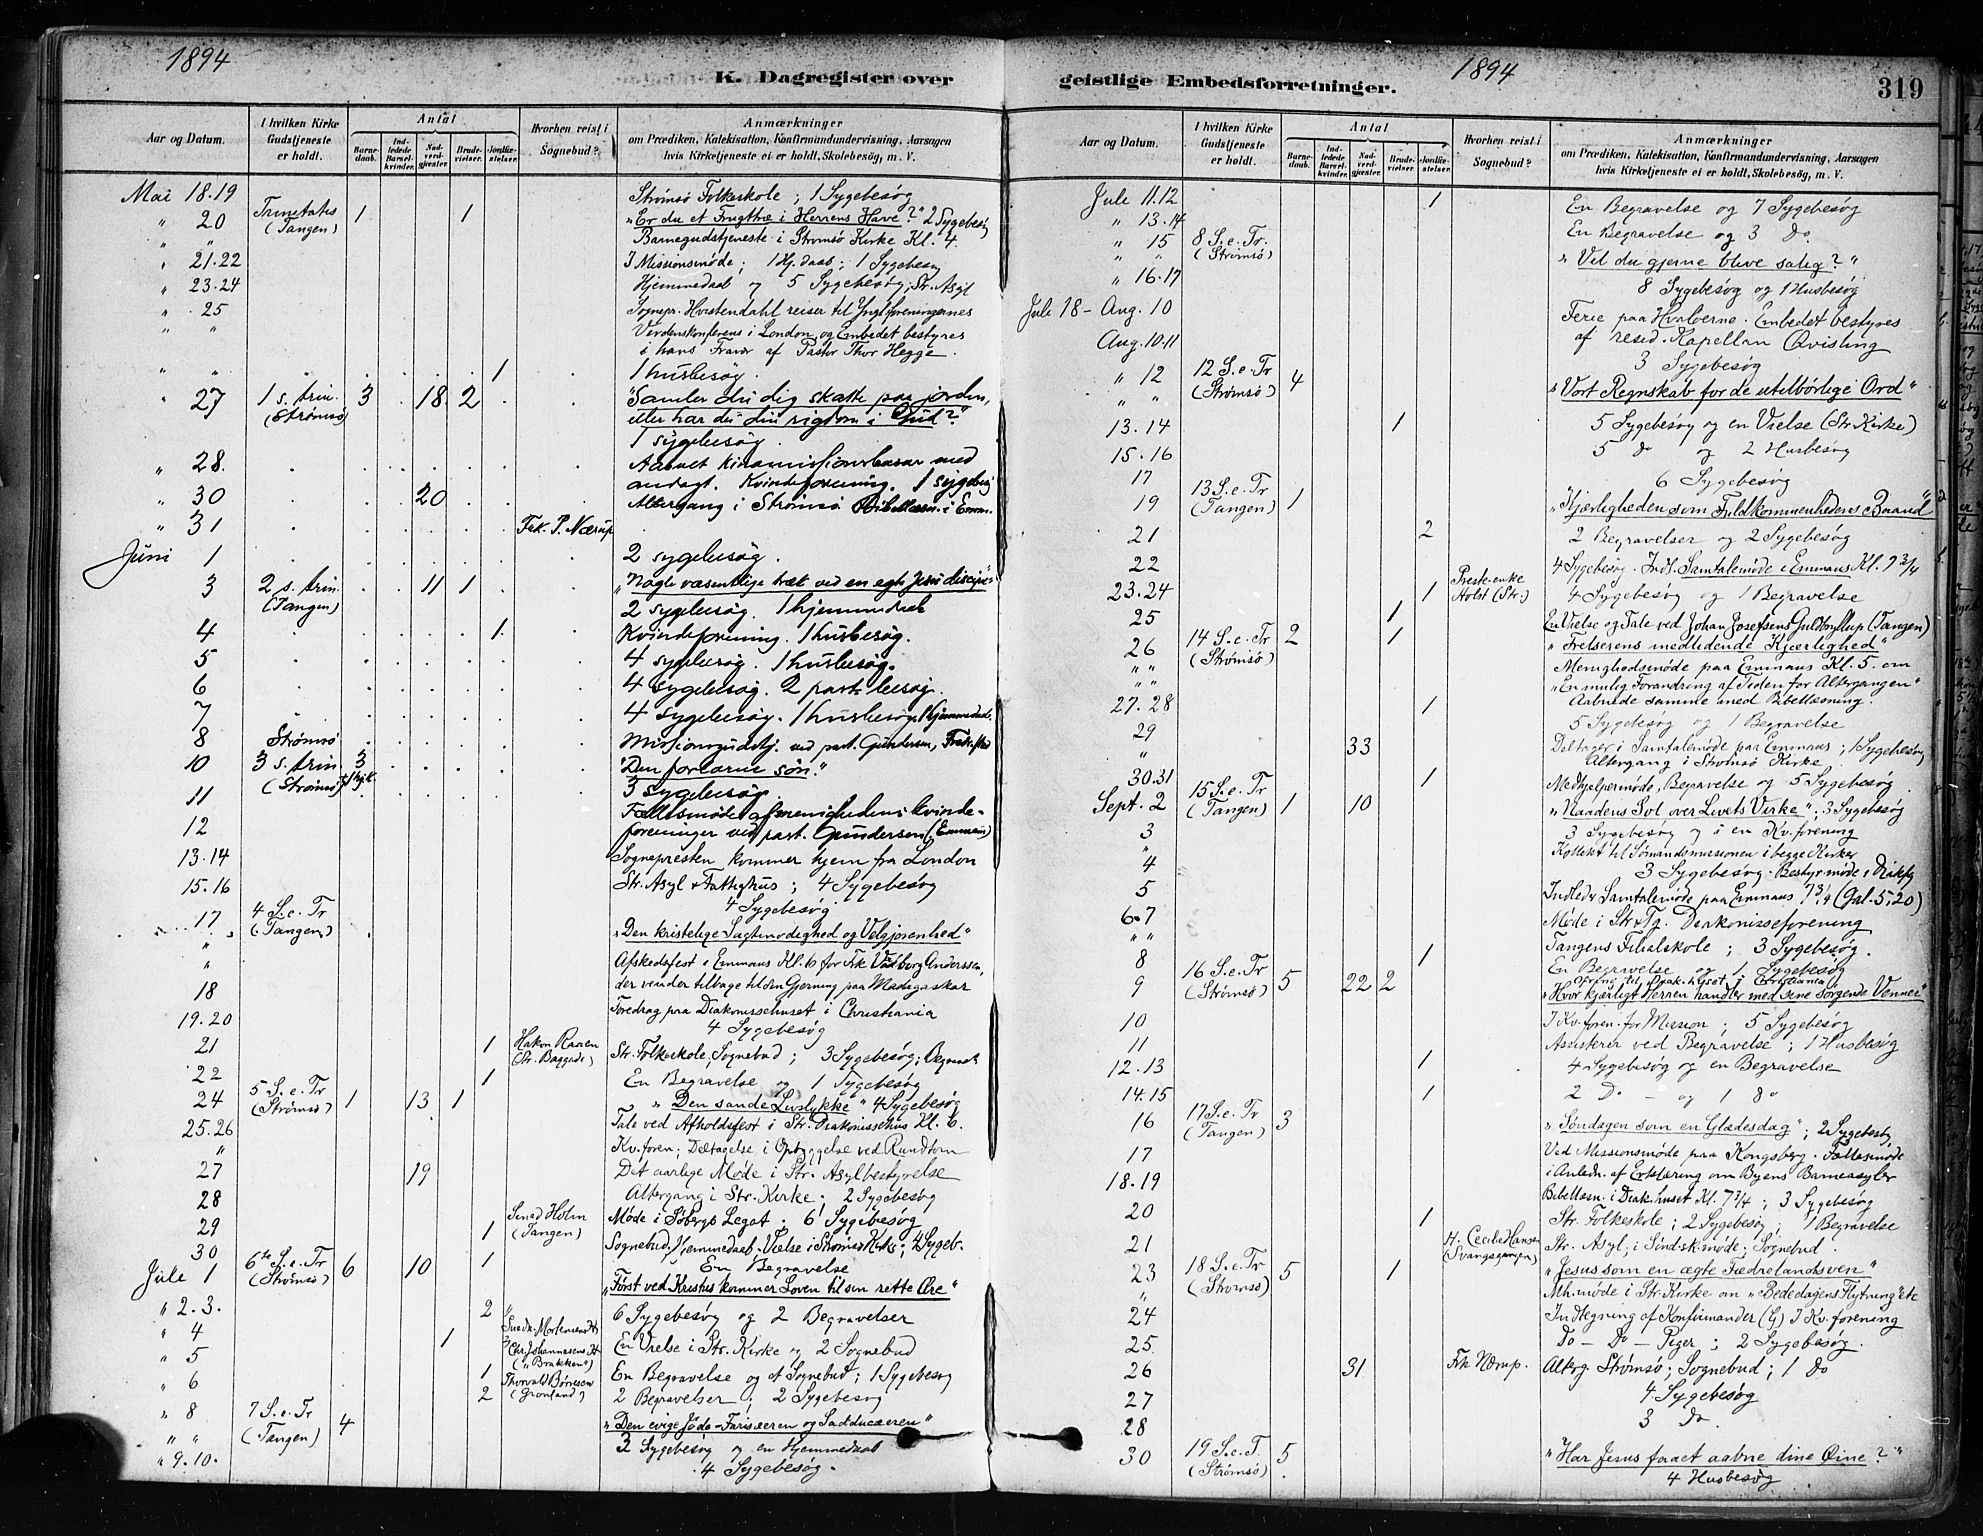 1894
K. Dagregister over
Aar og Datum.
I hvilken Kirke Gudstjeneste er holdt.
Antal
Barnedaab.
Indledede Barselkvinder.
Nadverdgjester.
Brudevielser.
Jordfæstelser.
Hvorhen reist i Sognebud?
Anmærkninger
om Prædiken, Katekisation, Konfirmandundervisning, Aarsagen
hvis Kirketjeneste ei er holdt, Skolebesög, m. V.
Mai 18.19 Strømsø Folkeskole; 1 Sygebesøg
" 20 Trinitatis (Tangen) 1 1 "Er du et Frugttræ i Herrens Have?" 2 Sygebesøg
" " Barnegudstjeneste i Strømsø Kirke Kl. 4.
" 21.22 I Missionsmøde; 1 Hj. daab; 1 Sygebesøg
" 23.24 Hjemmedaab og 5 Sygebesøg; Str. Asyl
" 25 Sognepr. Hvistendahl reiser til Ynglforeningernes
" " Verdenskonferens i London, og Embedet bestyres
i hans Fravær af Pastor Thor Hegge.
" " 1 1 husbesøg.
" 27 1 s. trin. (Strømsø) 3 18 2 "Samler du dig skatte paa jorden,
eller har du din rigdom i Gud?"
1 sygebesøg.
" 28. Aabnet kinamissionsbasar med
andagt. Kvindeforening. 1 sygebesøg
" 30 20 Altergang i Strømsø. Bibellæsn. i Emm.
" 31 Frk. P. Nærup
Juni 1 2 sygebesøg.
3 2 s. trin. (Tangen) 11 1 "Nogle væsentlige træk ved en egte Jesu discipel"
2 sygebesøg. 1 hjemmedaab
4 1 Kvindeforening. 1 husbesøg.
5 4 sygebesøg. 1 husbesøg.
6 4 sygebesøg. 2 husbesøg.
7 4 sygebesøg. 1 husbesøg. 1 hjemmedaab.
8 Strømsø Missionsgudstj. ved past. Gundersen, Fredrikstad
10 3 s. trin. (Strømsø) 3 "Den forlorne søn."
11 3 sygebesøg.
12 Fællesmøde af menighedens kvinde-
foreninger ved past. Gundersen (Emmaus)
13.14 Sognepresten kommer hjem fra London
15.16 Str. Asyl & Fattighus; 4 Sygebesøg
4 Sygebesøg
17 4 S. e. Tr (Tangen) "Den kristelige Sagtmodighed og Velgjørenhed"
" Afskedsfest i Emmaus Kl. 6 for Frk Valborg Anderssen,
" der vender tilbage til sin Gjerning paa Madagaskar
18 Foredrag paa Diakonissehuset i Christiania
19.20 4 Sygebesøg
21 1 Hakon Raaen (Str. Baggade) Str. Folkeskole; Sognebud; 3 Sygebesøg; Begravelse
22 1 En Begravelse og 1 Sygebesøg
24 5 S. e. Tr (Strømsø) 1 13 1 "Den sande Livslykke" 4 Sygebesøg
25.26 Tale ved Afholdsfest i Str. Diakonissehus Kl. 6.
" Kv. foren; Deltagelse i Opbyggelse ved Rundtom
27 19 Det aarlige Møde i Str. Asylbestyrelse
28 Altergang i Str. Kirke; 2 Sygebesøg
29 1 Holm (Tangen) Møde i Søbergs Legat; 6 Sygebesøg
30 1 Sognebud. Hjemmedaab. Vielse i Strømsø Kirke; 4 Sygeb.
En Begravelse
Jule 1 6te S. e. Tr (Strømsø) 6 10 "Først ved Kristus kommer Loven til sin rette Ære"
" 2.3. 2 6 Sygebesøg og 2 Begravelser
" 4 1 Mortensen Chr. Johannesens ("Brakken") En Vielse i Str. Kirke og 2 Sognebud
" 5 1 Thorvald Børresen (Grønland) En Begravelse og et Sognebud; 1 Sygebesøg
" 6 2 2 Begravelser; 2 Sygebesøg
" 8 7 S. e. Tr (Tangen) 4 "Den evige Jøde-Farisæeren og Sadducæeren"
" " 3 Sygebesøg og en Hjemmedaab
" 9.10. 4 Sygebesøg.
geistlige Embedsforretninger.
1894
319
Aar og Datum.
I hvilken Kirke Gudstjeneste er holdt.
Antal
Barnedaab.
Indledede Barselkvinder.
Nadverdgjester.
Brudevielser.
Jordfæstelser.
Hvorhen reist i Sognebud?
Anmærkninger
om Prædiken, Katekisation, Konfirmandundervisning, Aarsagen
hvis Kirketjeneste ei er holdt, Skolebesög, m. V.
Jule 11.12 1 En Begravelse og 7 Sygebesøg
" 13.14 En Begravelse og 3 Do
" 15 8 S. e. Tr. (Strømsø) "Vil du gjerne blive salig?"
" 16.17 8 Sygebesøg og 1 Husbesøg
Jule 18 - Aug. 10 Ferie paa Hvaløerne. Embedet bestyres
af resid. Kapellan Qvisling
Aug. 10.11 3 Sygebesøg
" 12 12 S. e. Tr (Strømsø) 4 "Vort Regnskab for de utilbørlige Ord"
13.14 1 5 Sygebesøg og en Vielse (Str. Kirke)
15.16 5 Do og 2 Husbesøg
17 6 Sygebesøg
19 13 S. e. Tr (Tangen) 1 "Kjærligheden som Fuldkommenhedens Baand"
21 2 2 Begravelser og 2 Sygebesøg
22 4 Sygebesøg. Indl. Samtalemøde i Emmaus Kl. 7 3/4
23.24 1 Preste-enke Holst (Str.) 4 Sygebesøg og 1 Begravelse
25 1 En Vielse og Tale ved Johan Josefsens Guldbryllup (Tangen)
26 14 S. e. Tr (Strømsø) 2 1 "Frelserens medlidende Kjærlighed"
" " Menighedsmøde paa Emmaus Kl. 5. om
" " "En mulig Forandring af Tiden for Altergangen"
Aabnede samme med Bibellæsning.
27.28 1 5 Sygebesøg og 1 Begravelse
29 Deltager i Samtalemøde paa Emmaus; 1 Sygebesøg
" 33 Altergang i Strømsø Kirke
30.31 1 Medhjelpermøde, Begravelse og 5 Sygebesøg
Sept. 2 15 S. e. Tr (Tangen) 1 10 "Naadens Sol over Livets Virke"; 3 Sygebesøg
3 3 Sygebesøg og i en Kv. forening
" Kollekt til Sømandsmissionen i begge Kirker
4 3 Sygebesøg. Bestyr. møde i Diakfg
5 Indleder Samtalemøde paa Emmaus 7 3/4 (Gal. 5,20)
6.7 Møde i Str. & Tg. Diakonisseforening
" " Tangens Filialskole; 3 Sygebesøg.
8 1 En Begravelse og 1 Sygebesøg
Ofring til Diak. huset i Cristiania
9 16 S. e. Tr (Strømsø) 5 22 2 "Hvor kjærligt Herren handler med sine sørgende Venner"
10 I Kv. foren. for Mission; 5 Sygebesøg
11 Assisterer ved Begravelse; 1 Husbesøg
12.13 1 4 Sygebesøg og en Begravelse
14.15 1 2 Do - og 1 do
16 17 S. e. Tr (Tangen) 3 "Søndagen som en Glædesdag"; 2 Sygebesøg
17 Ved Missionsmøde paa Kongsberg. Fællesmøde
i Anledn. af Erklæring om Byens Barneasyler
18.19 Bibellæsn. i Diak. huset Kl. 7 3/4; 3 Sygebesøg
20 1 Str. Folkeskole; 2 Sygebesøg; 1 Begravelse
21 H. Cecilie Hansen (Svangsgangen) Str. Asyl; i Sindsk. møde; Sognebud.
23 18 S. e. Tr (Strømsø) 5 1 "Jesus som en ægte Fædrelandsven"
" Mh. møde i Str. Kirke om "Bededagens Flytning" etc
24 Indtegning af Konfirmander (G) I Kv. forening
25 Do - Do - Piger; 2 Sygebesøg.
26 31 Frk Nærup. Alterg. Strømsø; Sognebud; 1 Do
27 4 Sygebesøg
28 3 Do.
30 19 S. e. T. (Strømsø) 5 "Har Jesus faaet aabne dine Øine?"
4 Husbesøg